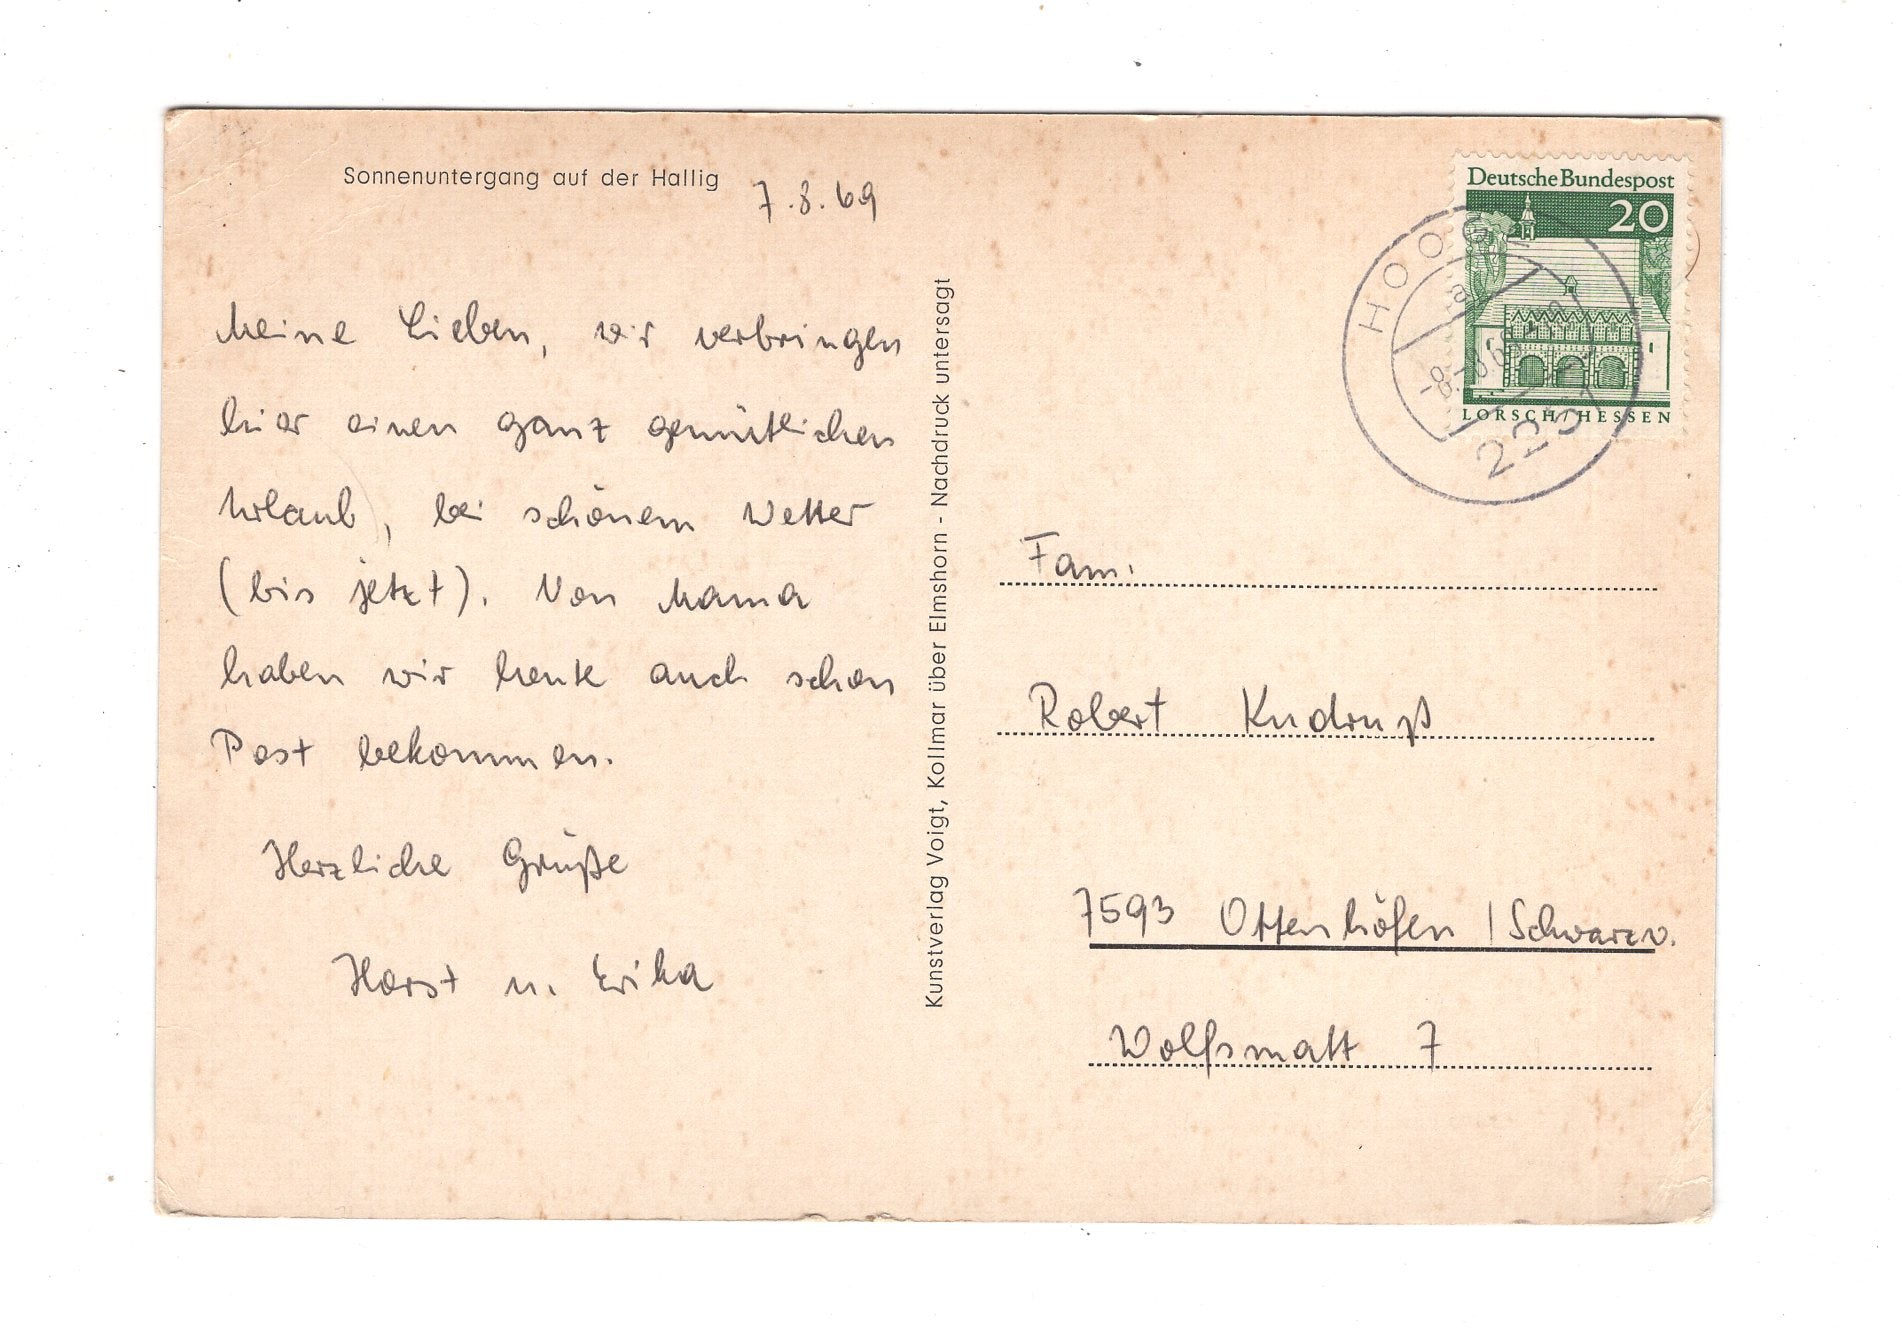 Sonnenuntergang auf der Hallig
7.8.69
Meine Lieben, wir verbringen
hier einen ganz gemütlichen
Urlaub, bei schönem Wetter
(bis jetzt). Von Mama
haben wir heute auch schon
Post bekommen.
Herzliche Grüße
Horst u. Erika
Kunstverlag Voigt, Kollmar über Elmshorn - Nachdruck untersagt
Deutsche Bundespost
20
LORSCH/HESSEN
HOOGE
a
-8.-8.69
Fam.
Robert Kudruß
7593 Ottenhöfen / Schwarzw.
Wolfsmatt 7